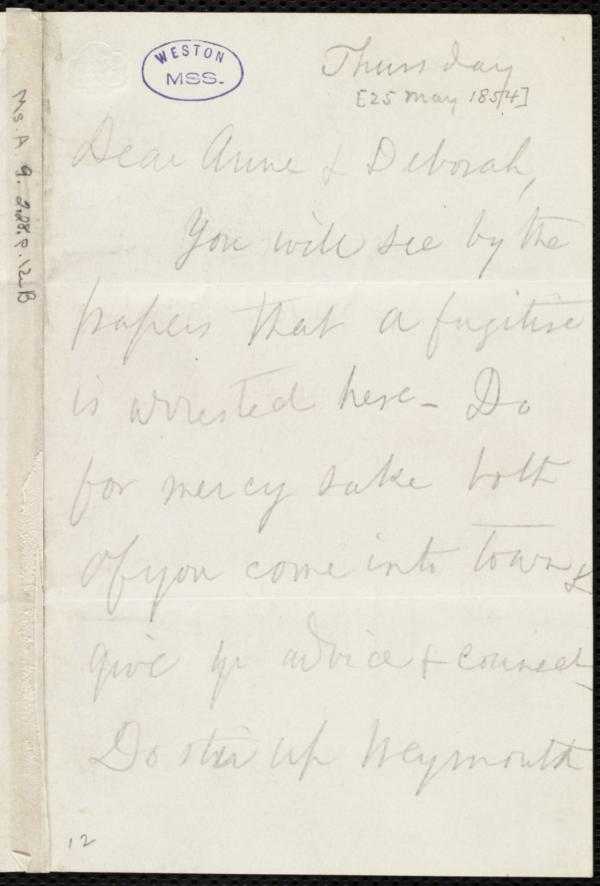 WESTON
MSS.
Thursday
[25 May 1854]
Dear Anne & Deborah,
You will see by the
papers that a fugitive
is arrested here - Do
for mercy sake both
of you come into town &
give yr advice & counsel -
Do stir up Weymouth
12
Ms. A 9. 2. 28. p. 12 B